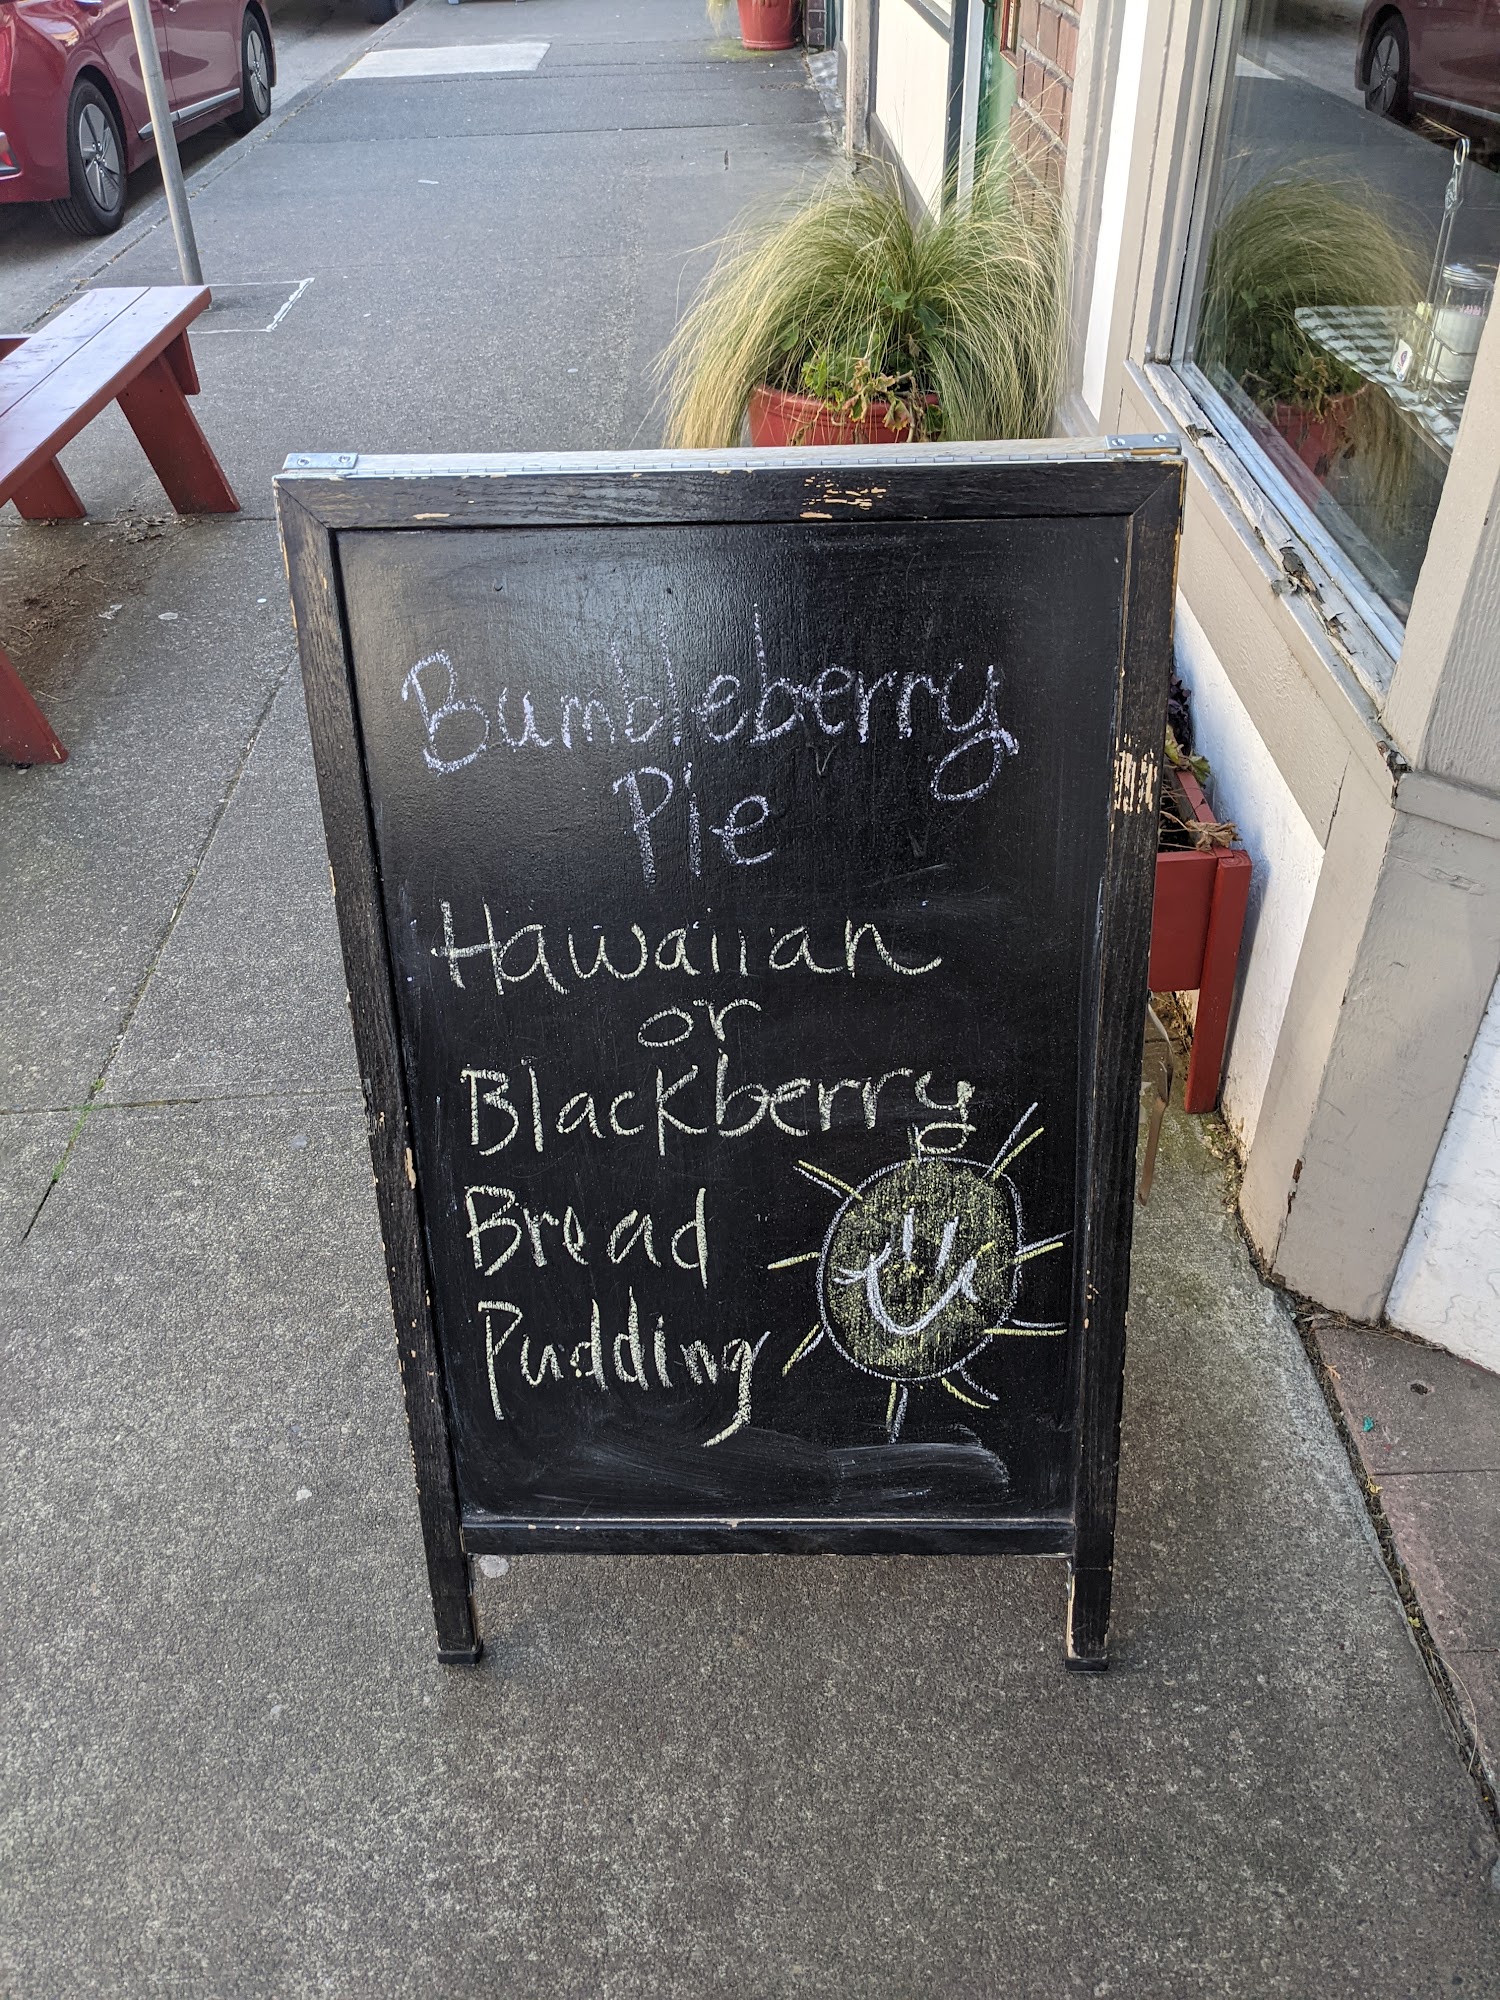 Bumbleberry
Pie
Hawaiian
or
Blackberry
Bread
Pudding